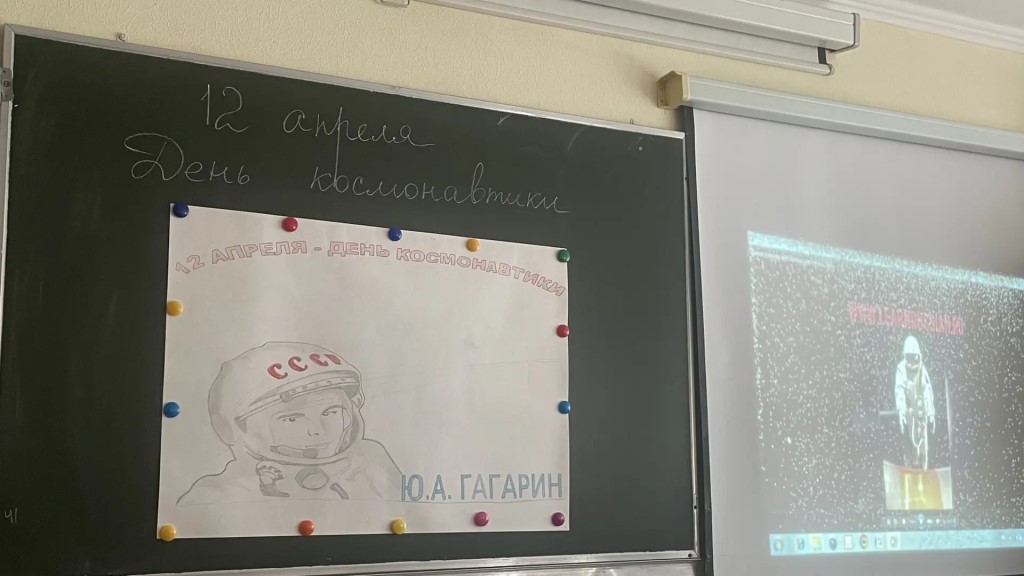 12 апреля
День космонавтики
12 АПРЕЛЯ - ДЕНЬ КОСМОНАВТИКИ
СССР
Ю.А. ГАГАРИН